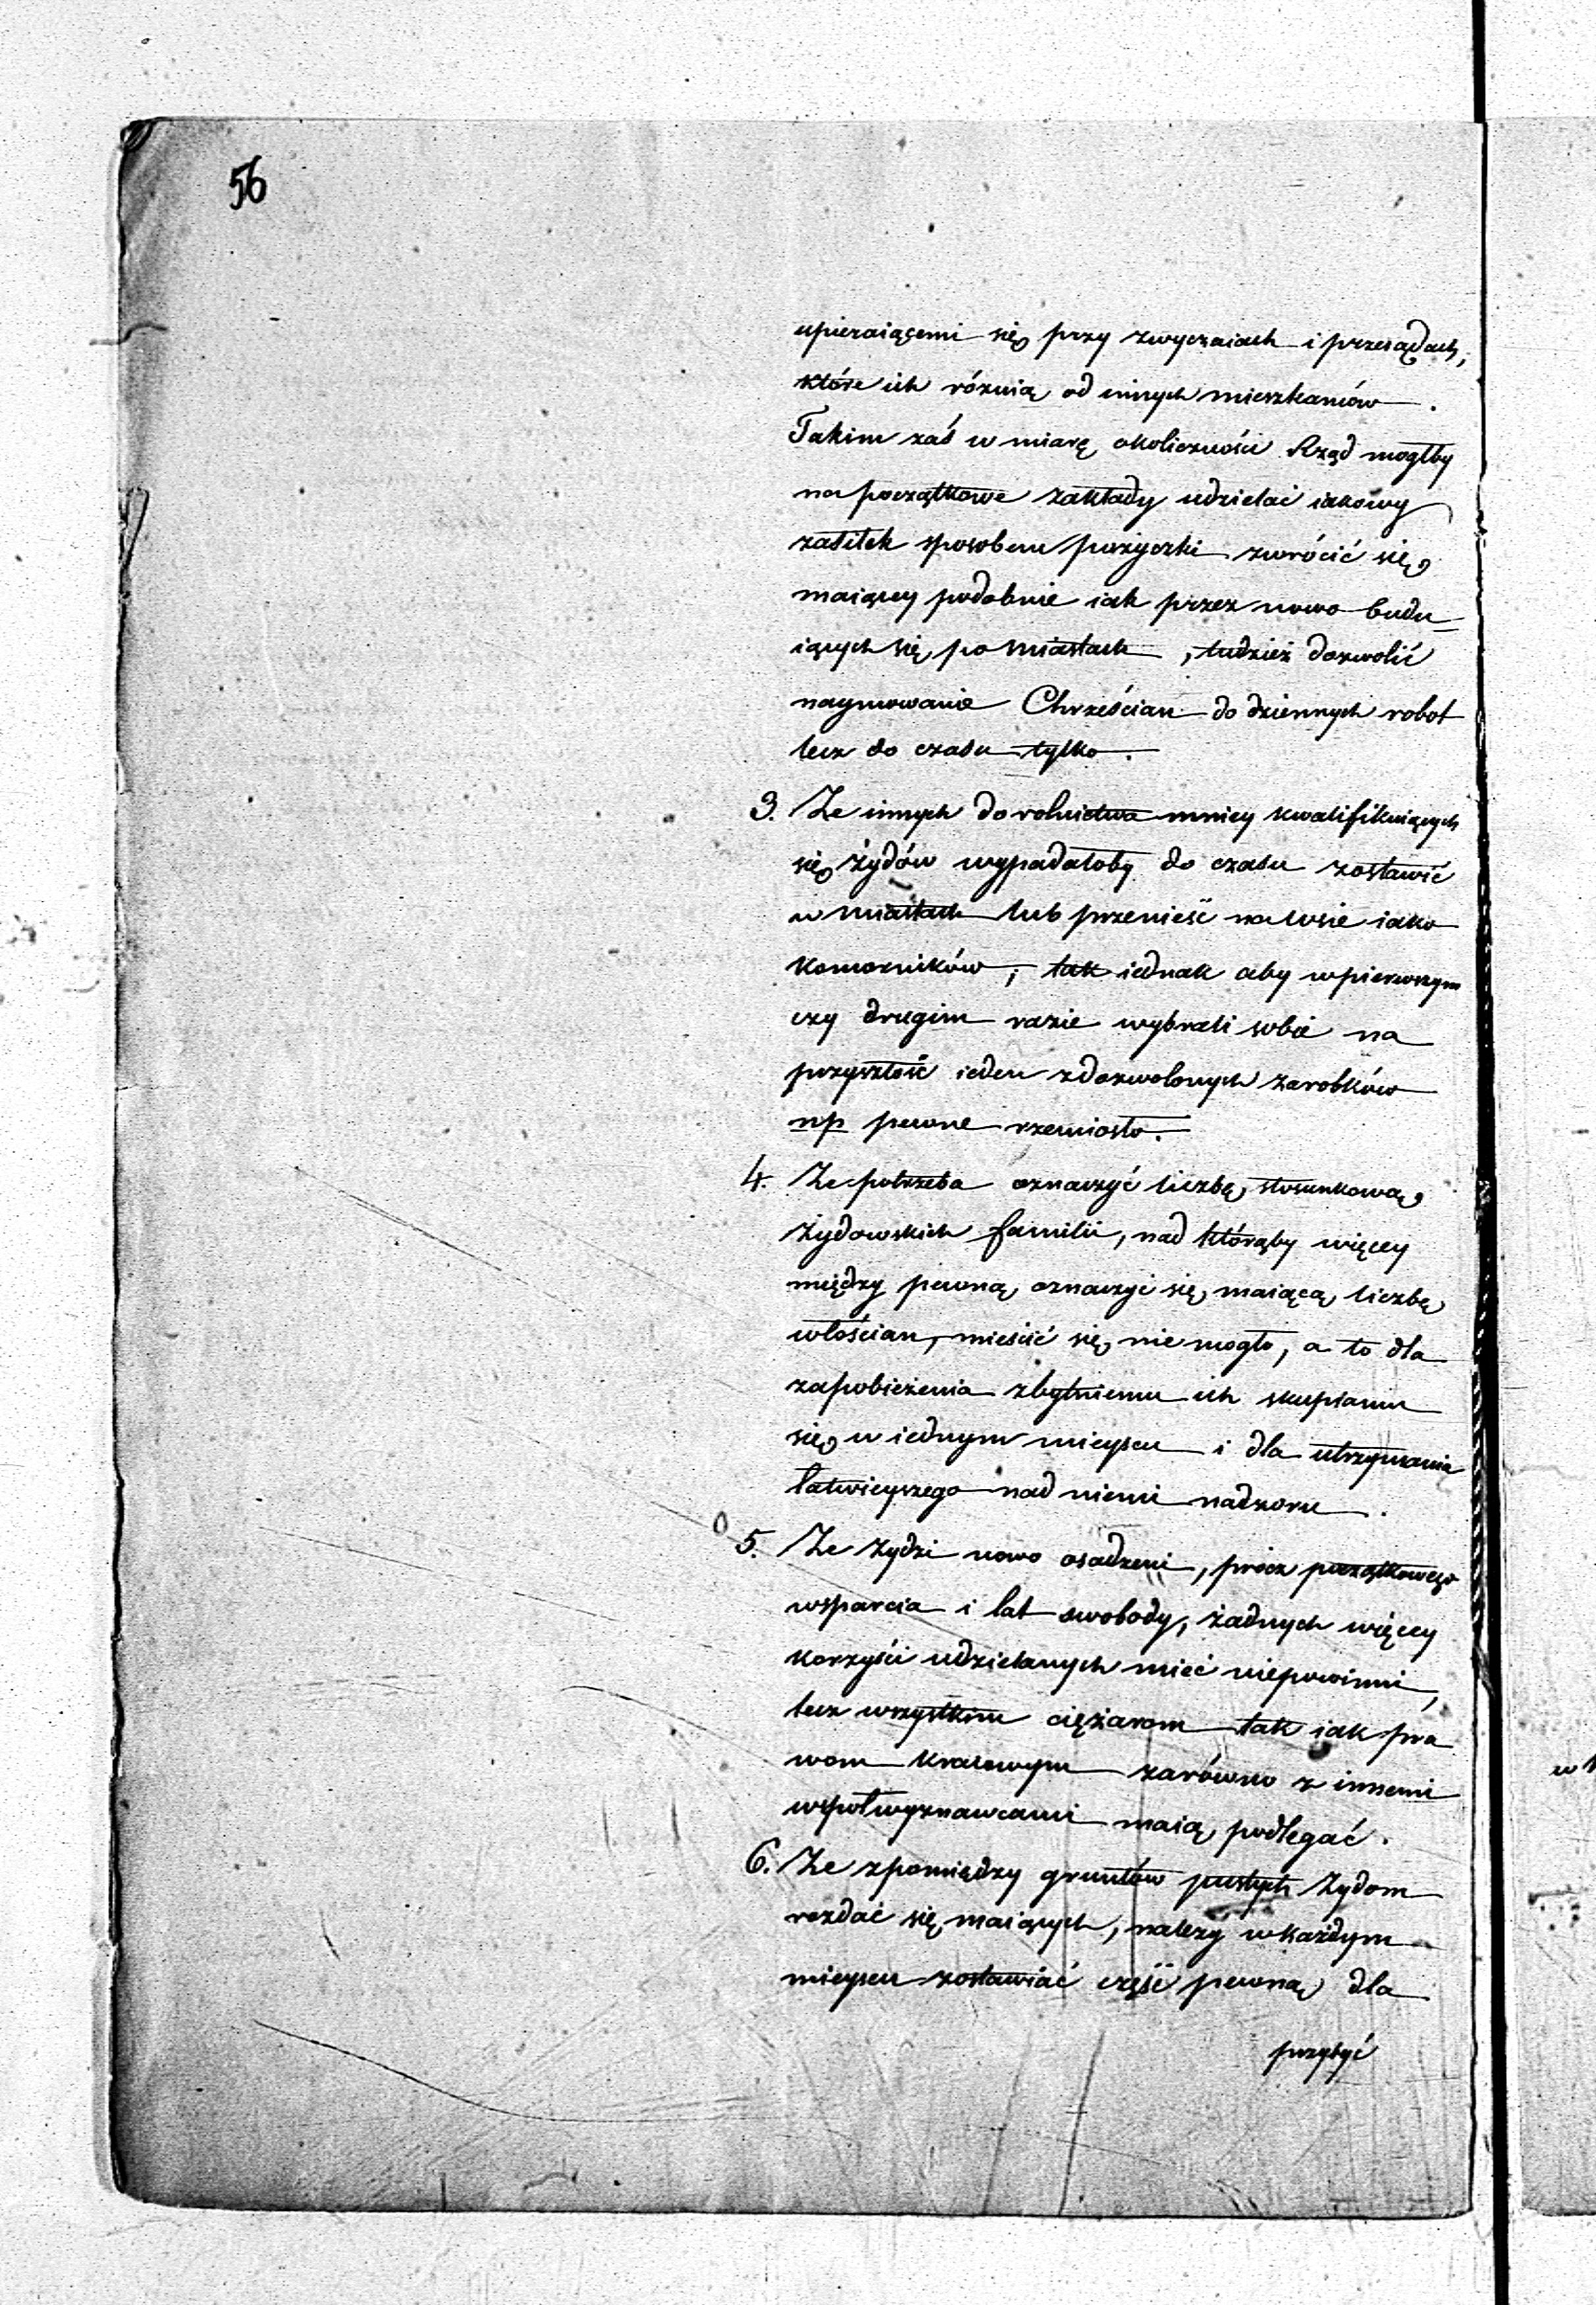 56
upieraiącemi się przy zwyczaiach i przesądach,
które ich różnią od innych mieszkańców.
Takim zaś w miarę okoliczności Rząd mogłby
na początkowe zakłady udzielać iakowy
zasiłek sposobem pożyczki zwrócić się
maiącey podobnie iak przez nowo budu=
iących się po miastach, tudzież dozwolić
naymowanie Chrześcian do dziennych robot
lecz do czasu tylko.
3. Ze innych do rolnictwa mniey kwalifikuiących
się Żydów wypadałoby do czasu zostawić
w miastach lub przenieść na wsie iako
komorników, tak iednak aby w pierwszym
czy drugim razie wybrali sobie na
przyszłość ieden z dozwolonych zarobków
np pewne rzemiosło.
4. Ze potrzeba oznaczyć liczbę stosunkową
Żydowskich familii, nad którąby więcey
między pewną oznaczyć się maiącą liczbę
włościan, mieścić się nie mogło, a to dla
zapobieżenia zbytniemu ich skupianiu
się w iednym mieyscu i dla utrzymania
łatwieyszego nad niemi nadzoru.
5. Ze Żydzi nowo osadzeni, prócz początkowego
wsparcia i lat swobody, żadnych więcey
korzyści udzielanych mieć niepowinni,
lecz wszystkim ciężarom tak iak pra
wom kraiowym zarówno z innemi
współwyznawcami maią podlegać.
6. Ze z pomiędzy gruntów pustych Żydom
rozdać się maiących, należy w każdym
mieyscu zostawiać część pewną dla
przybyć